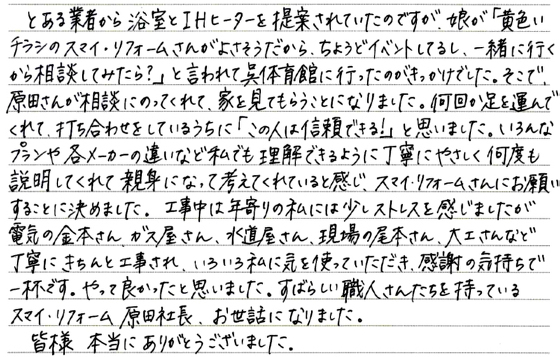 とある業者から浴室とIHヒーターを提案されていたのですが、娘が「黄色い
チラシのスマイ・リフォームさんがよさそうだから、ちょうどイベントしてるし、一緒に行く
から相談してみたら?」と言われて呉体育館に行ったのがきっかけでした。そこで、
原田さんが相談にのってくれて、家を見てもらうことになりました。何回か足を運んで
くれて、打ち合わせをしているうちに「この人は信頼できる!」と思いました。いろんな
プランや各メーカーの違いなど私でも理解できるように丁寧にやさしく何度も
説明してくれて親身になって考えてくれていると感じ、スマイ・リフォームさんにお願い
することに決めました。工事中は年寄りの私には少しストレスを感じましたが
電気の金本さん、ガス屋さん、水道屋さん、現場の尾本さん、大工さんなど
丁寧にきちんと工事され、いろいろ私に気を使っていただき、感謝の気持ちで
一杯です。やって良かったと思いました。すばらしい職人さんたちを持っている
スマイ・リフォーム 原田社長、お世話になりました。
皆様 本当にありがとうございました。